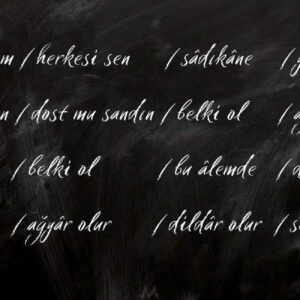 m / herkesi sen / sâdıkâne /
n / dost mu sandın / belki ol /
/ belki ol / bu âlemde /
/ ağyâr olur / dildâr olur /